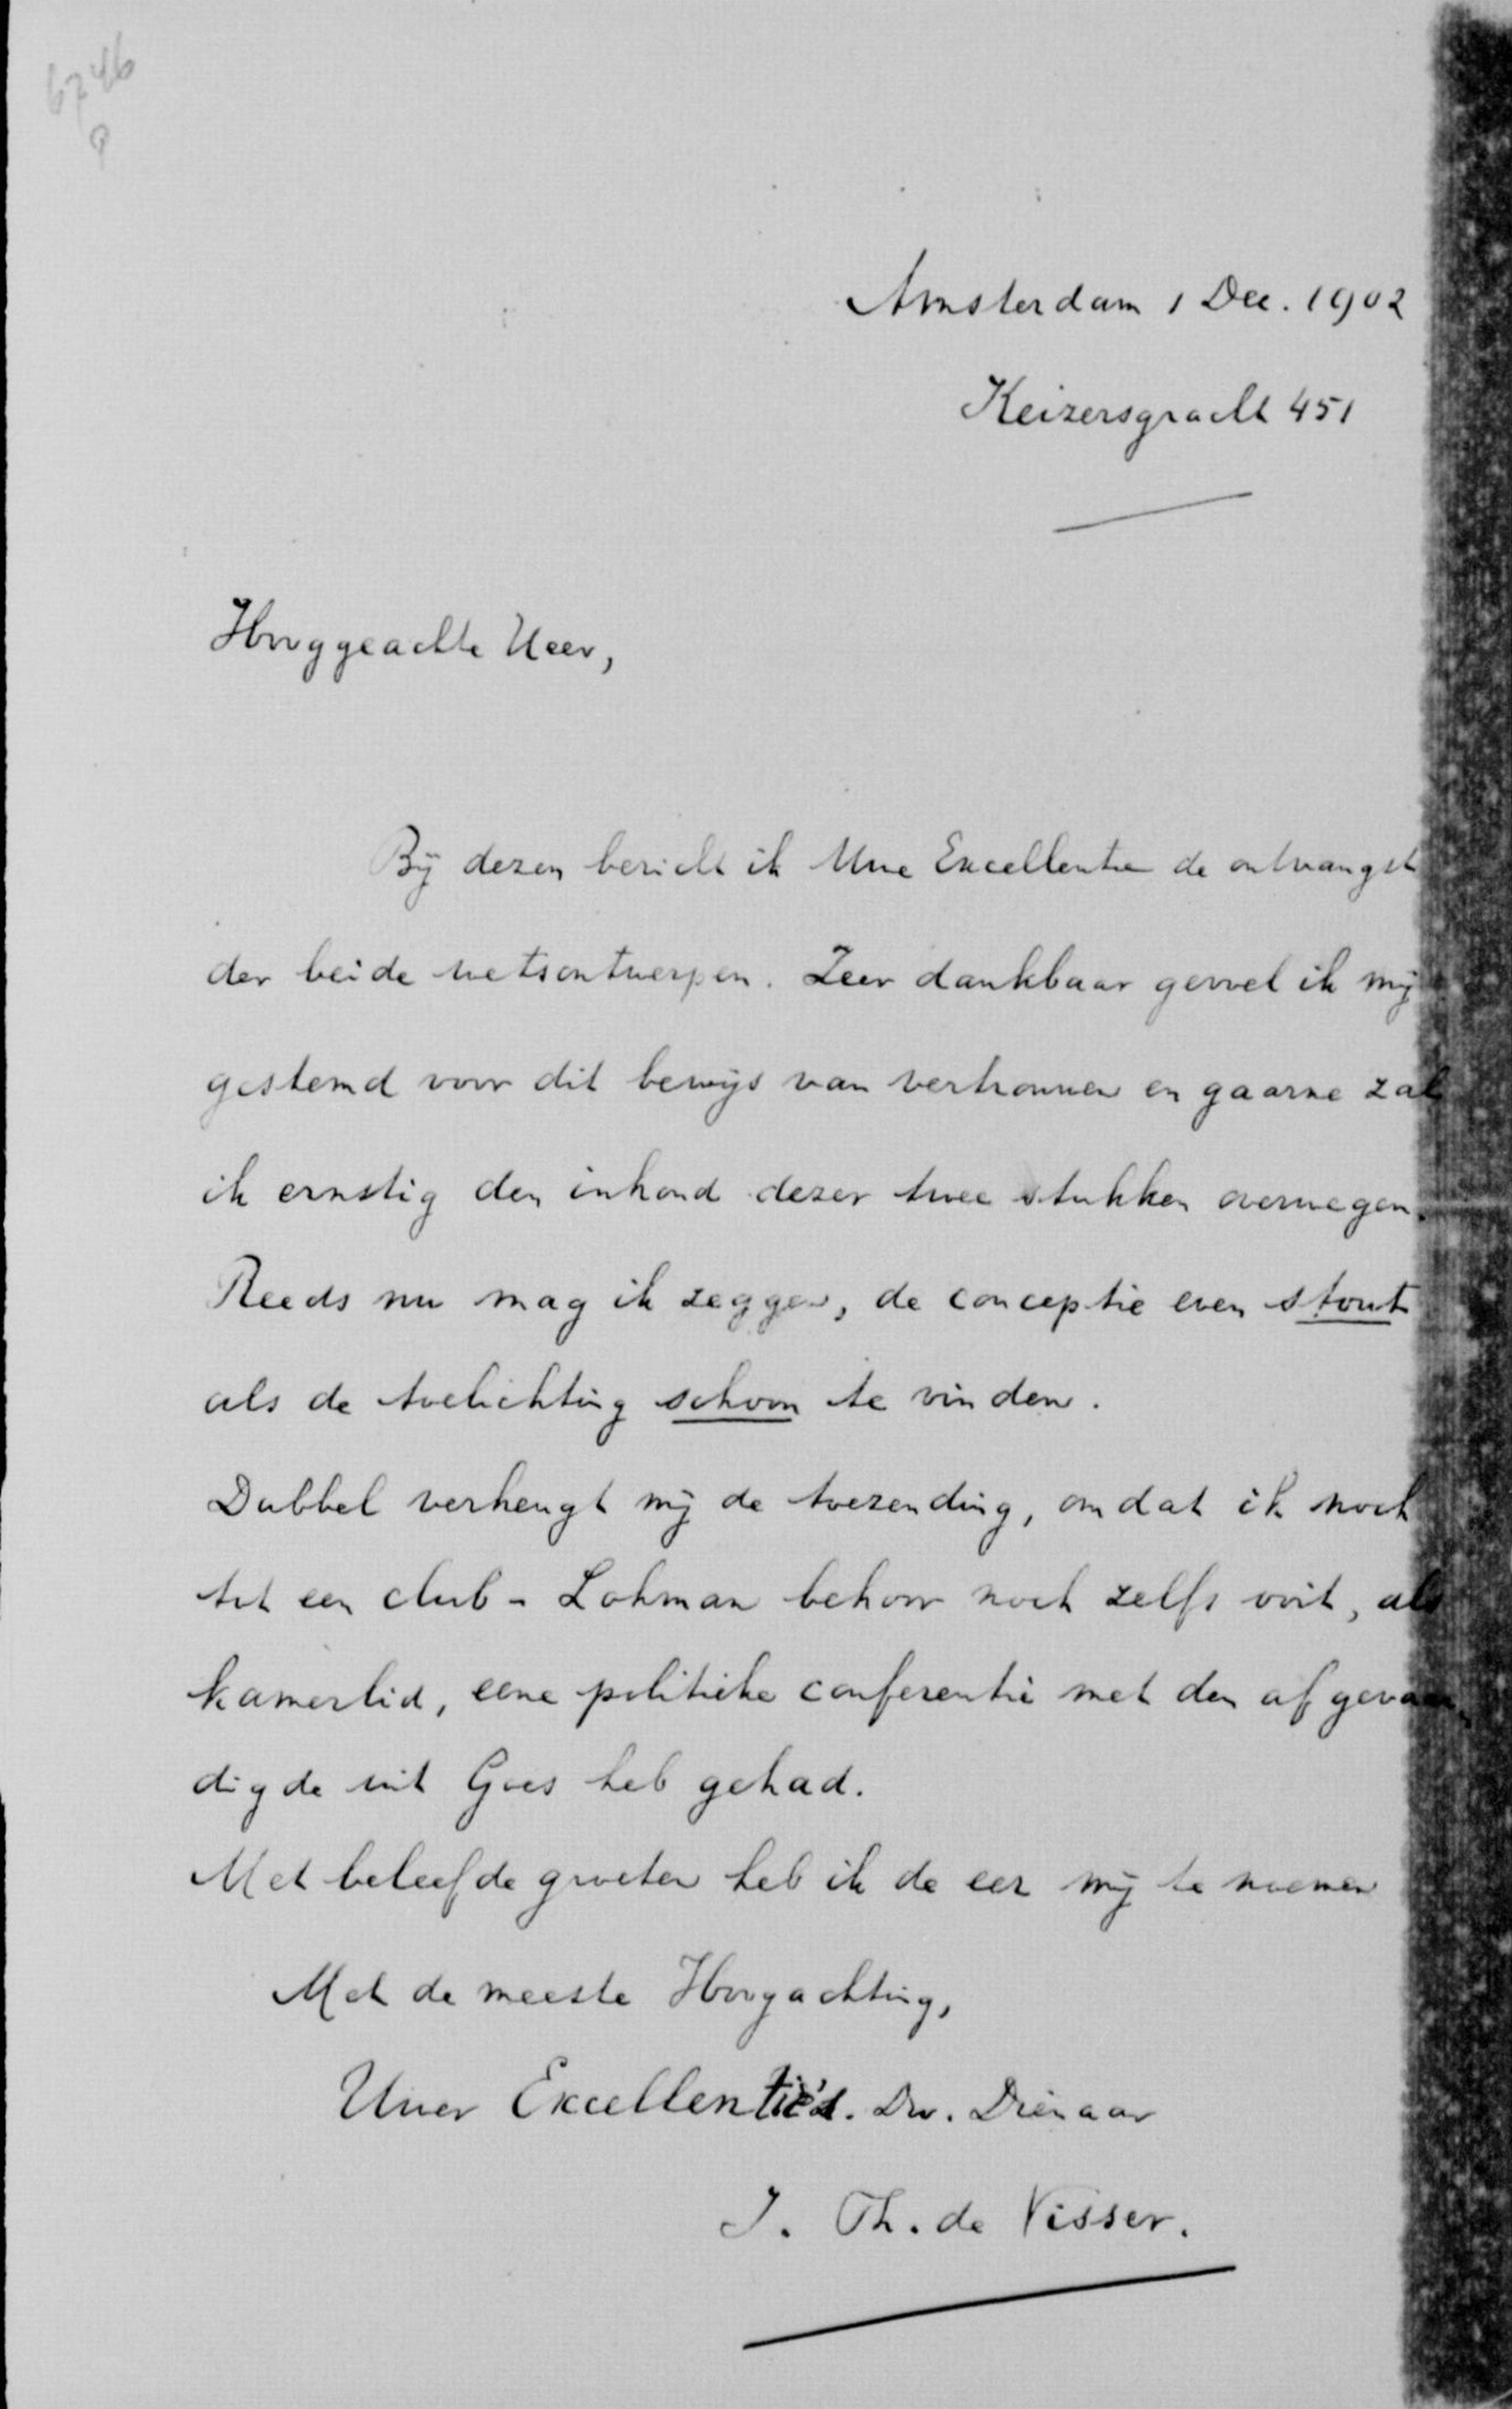 6746
Amsterdam 1 Dec. 1902
Keizersgracht 451
Hooggeachte Heer,
Bij dezen bericht ik Uwe Excellentie de ontvangst
der beide wetsontwerpen. Zeer dankbaar gevoel ik mij
gestemd voor dit bewijs van vertrouwen en gaarne zal
ik ernstig den inhoud dezer twee stukken overwegen.
Reeds nu mag ik zeggen, de conceptie even stout
als de toelichting schoon te vinden.
Dubbel verheugt mij de toezending, omdat ik noch
tot een club-Lohman behoor noch zelfs ooit, als
kamerlid, eene politieke conferentie met den afgevaar-
digde uit Goes heb gehad.
Met beleefde groeten heb ik de eer mij te noemen
Met de meeste Hoogachting,
Uwer Excellentie's. Dw. Dienaar
J. Th. de Visser.